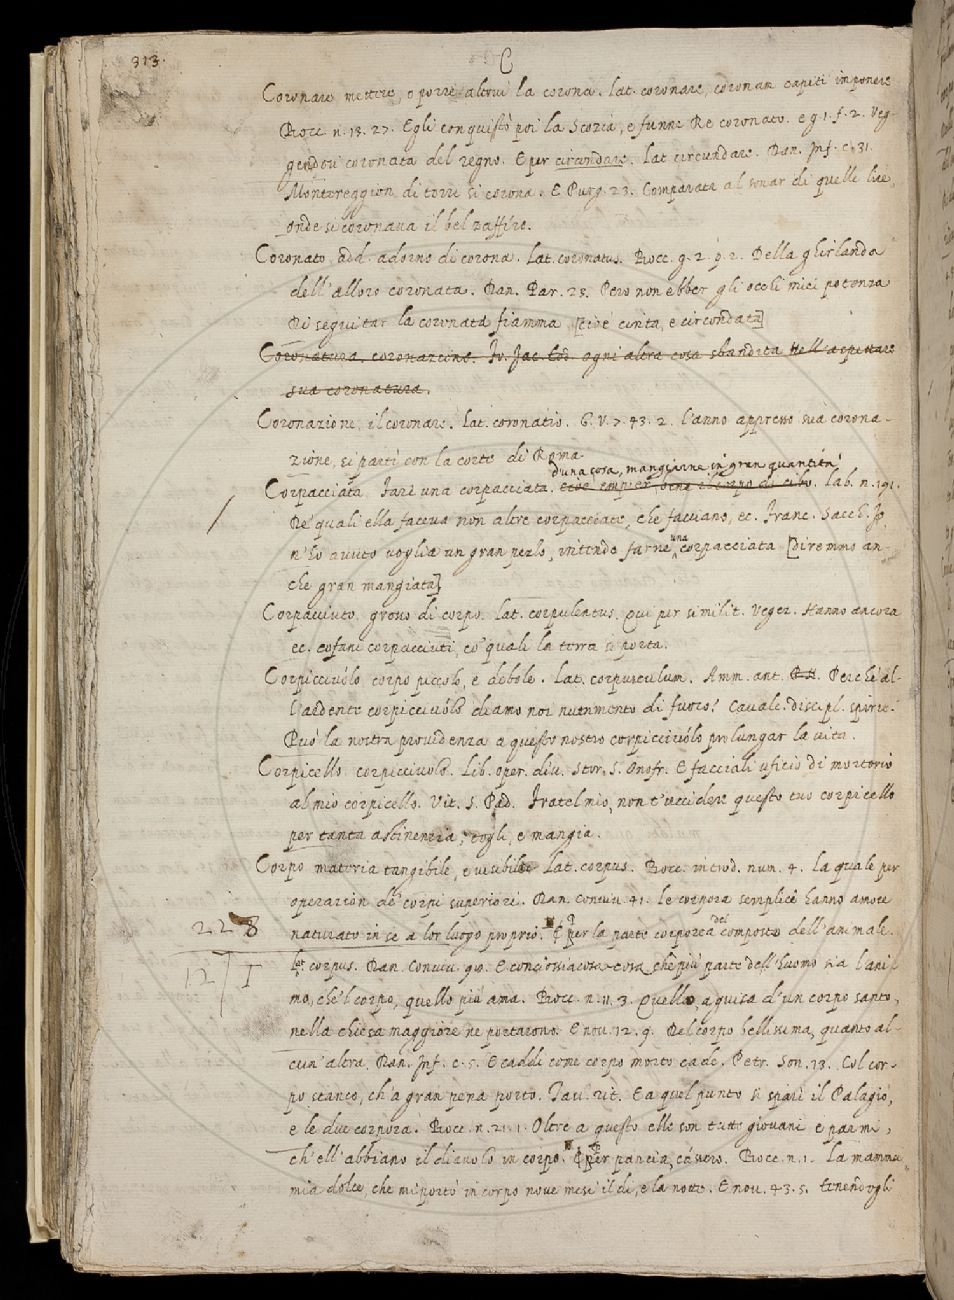 313.
C
Coronare mettere, o porre altrui la corona. Lat. coronare, coronam capiti imponere
Bocc. n. 13. 27. Egli conquistò poi la Scozia, e funne Re coronato. e g. 1. f. 2. Veg-
gendosi coronata del regno. E per circundare. Lat. circundare. Dan. Inf. c. 31.
Montereggion di torri si corona. E Purg. 23. Comparata al sonar di quelle lire,
onde si coronaua il bel zaffiro.
Coronato, add. adorno di corona. Lat. coronatus. Bocc. g. 2. p. 2. Della ghirlanda
dell'alloro coronata. Dan. Par. 25. Pero non ebber gli occhi miei potenza
Di seguitar la coronata fiamma [cioè cinta, e circondata]
Coronatura, coronazione. Fr. Jac. Tod. ogni altra cosa sbandita Nell'aspettare
sua coronatura.
Coronazione, il coronare. Lat. coronatio. G. V. 7. 43. 2. l'anno appresso sua corona-
zione, si partì con la corte di Roma.
d'una cosa, mangiarne in gran quantità
Corpacciata. Fare una corpacciata. cioè empier bene il corpo di cibo. Lab. n. 191.
De' quali ella faceua non altre corpacciate, che facciano, ec. Franc. Sacch. Io
n'ho auuto uoglia un gran pezzo, intendo farne una corpacciata [diremmo an-
che gran mangiata]
Corpacciuto, grosso di corpo. Lat. corpulentus. qui per similit. Veger. Hanno ancora
ec. cofani corpacciuti, co' quali la terra si porta.
Corpicciuólo, corpo piccolo, e debole. Lat. corpusculum. Amm. ant. Perche al-
l'ardente corpicciuólo diamo noi nutrimento di fuoco? Caualc. Discipl. spirit.
Può la nostra prouidenza a questo nostro corpicciuólo prolungar la uita.
Corpicello. corpicciuolo. Lib. oper. diu. Stor. S. Onofr. E facciali uficio di mortorio
al mio corpicello. Vit. S. Pad. Fratel mio, non t'uccidere questo tuo corpicello
per tanta astinenzia; togli, e mangia.
Corpo materia tangibile, e uisibile Lat. corpus. Bocc. introd. num. 4. La quale per
operazion de' corpi superiori. Dan. Conuiu. 41. le corpora semplici hanno amore
228
naturato in se a lor luogo proprio. E per la parte corporea del composto dell'animale.
12 I
lat. corpus. Dan. Conuiu. 90. E conciossiacosa-cosa, che più parte dell'huomo sia l'ani-
mo, che 'l corpo, quello più ama. Bocc. n. 11. 3. Quello, a guisa d'un corpo santo,
nella chiesa maggiore ne portarono. E nou. 12. 9. Del corpo bellissima, quanto al-
cun'altra. Dan. Inf. c. 5. E caddi come corpo morto cade. Petr. Son. 13. Col cor-
po stanco, ch'a gran pena porto. Tau. rit. E a quel punto si sparì il Palagio,
e le due corpora. Bocc. n. 21. 1. Oltre a questo elle son tutte giouani e parmi,
ch'ell'abbiano il diauolo in corpo. E per pancia, Bocc. n. 1. La mamma
mia dolce, che mi portò in corpo noue mesi il dì, e la notte. E nou. 43. 5.